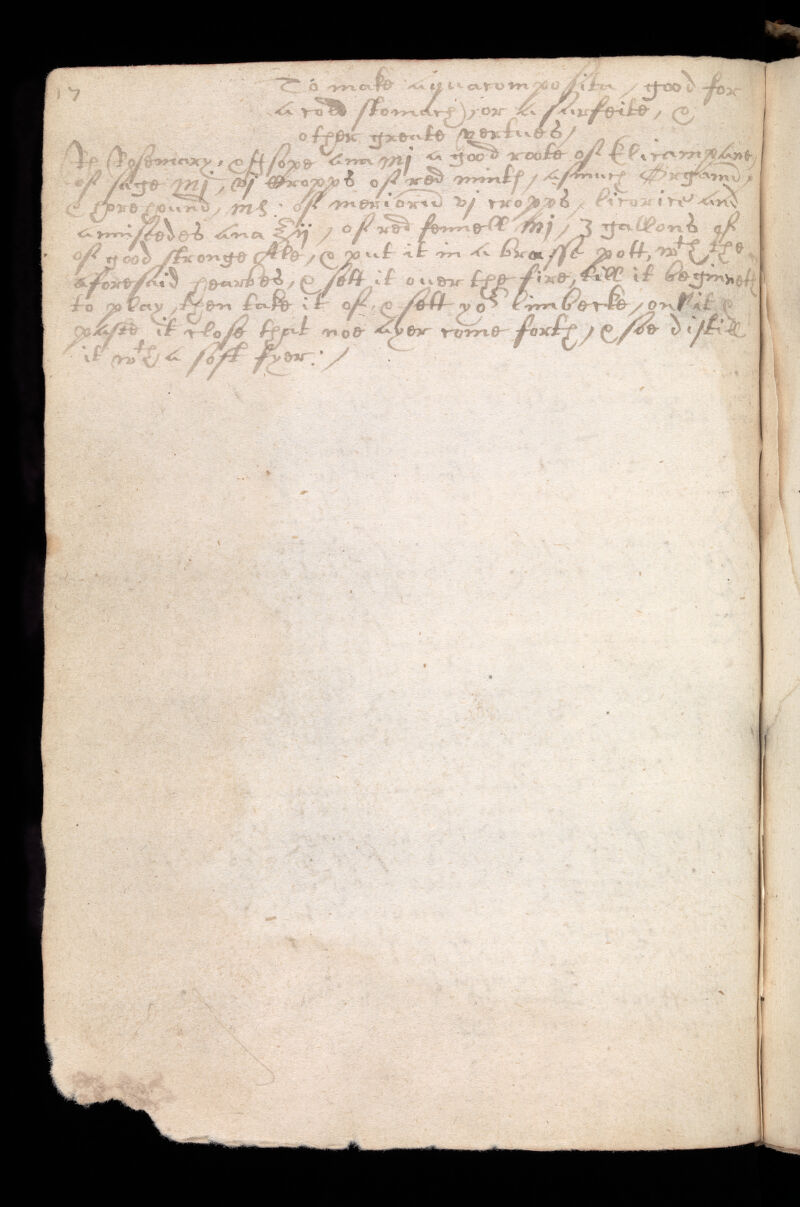 17
To make aquacomposita, good for
a cold stomach, or a surfeite, &
other greate vertues,
Rx Rosemary, & Isope ana Mj a good roote of Elicampane,
of sage Mj, vj cropps of red minth, asmuch Organū,
& horehound, ms: of meriorū vj cropps, licorice and
anniseedes ana ℥ij, of red fennell Mj, 3 gallons of
of good stronge Ale, & put it in a brasse pott, wth the
aforesaid hearbes, & sett it ouer the fire, till it beginneth
to play, then take it of, & sett yor limbecke, on it &
paste it close that noe ayer come forth, & soe distill
it wth a soft fyer: /